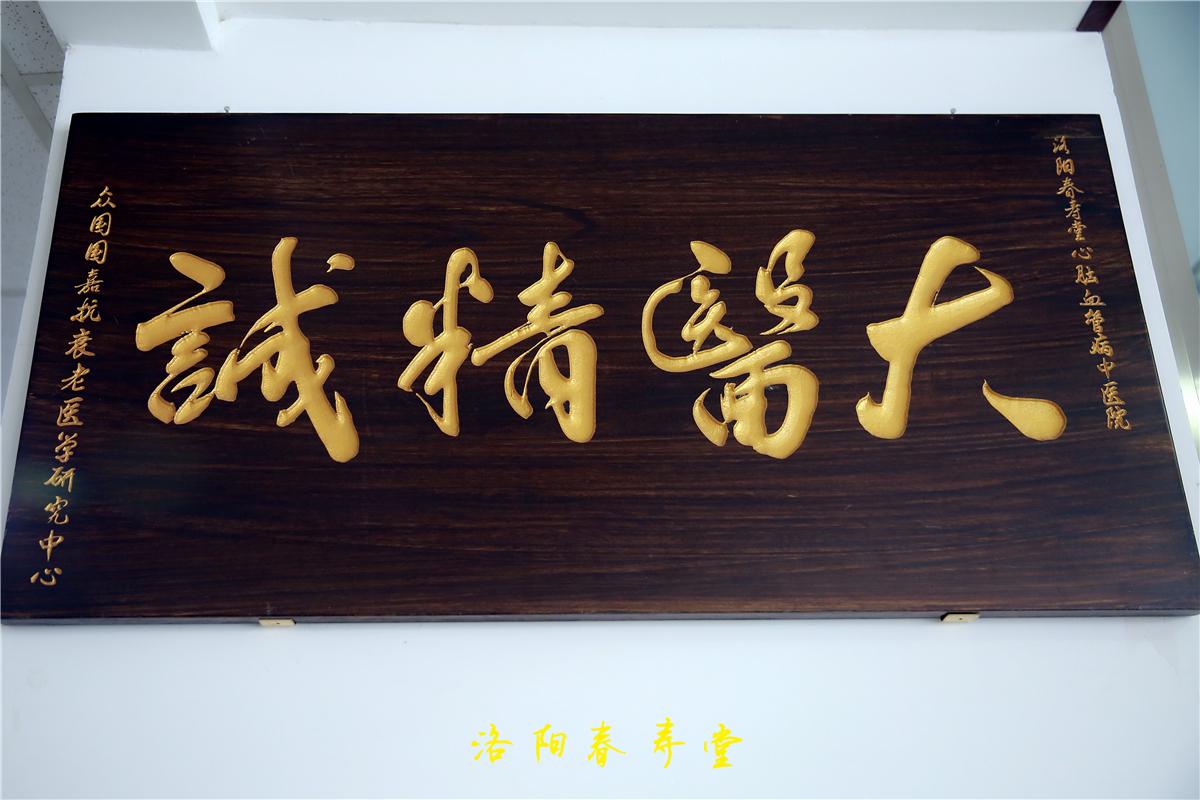 洛阳春寿堂心脏血管病中医院
大醫精誠
众国国嘉抗衰老医学研究中心
洛阳春寿堂